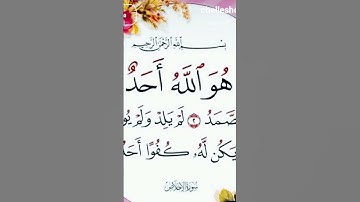 بِسْمِ اللَّهِ الرَّحْمَٰنِ الرَّحِيمِ
هُوَ ٱللَّهُ أَحَدٌ
لَمْ يَلِدْ وَلَمْ ٢
لَّهُۥ كُفُوًا
سُورَةُ الْإِخْلَاصِ